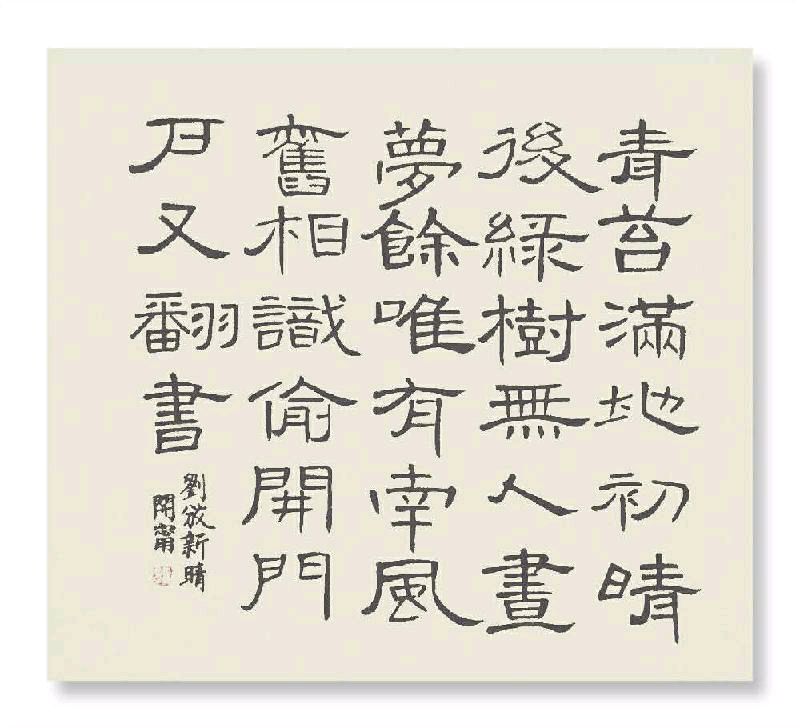 青苔滿地初晴
後綠樹無人晝
夢餘唯有南風
舊相識偷開門
戶又翻書
劉攽新晴
開甯